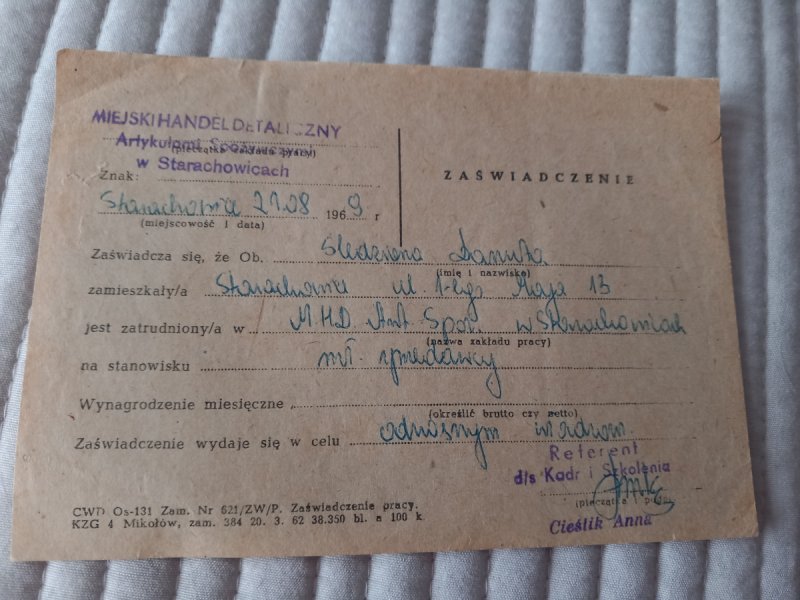 MIEJSKI HANDEL DETALICZNY
Artykułami Spożywczymi
(pieczątka zakładu pracy)
w Starachowicach
Znak:
ZAŚWIADCZENIE
Starachowice 21.08 1969 r
(miejscowość i data)
Zaświadcza się, że Ob. Danuta
(imię i nazwisko)
zamieszkały/a Starachowice ul. 1-ego Maja 13
jest zatrudniony/a w M.H.D. Art. Spoż. w Starachowicach
(nazwa zakładu pracy)
na stanowisku mł. sprzedawcy
Wynagrodzenie miesięczne
(określić brutto czy netto)
Zaświadczenie wydaje się w celu
Referent
d/s Kadr i Szkolenia
(pieczątka i podpis)
Cieślik Anna
CWD Os-131 Zam. Nr 621/ZW/P. Zaświadczenie pracy.
KZG 4 Mikołów, zam. 384 20. 3. 62 38.350 bl. a 100 k.